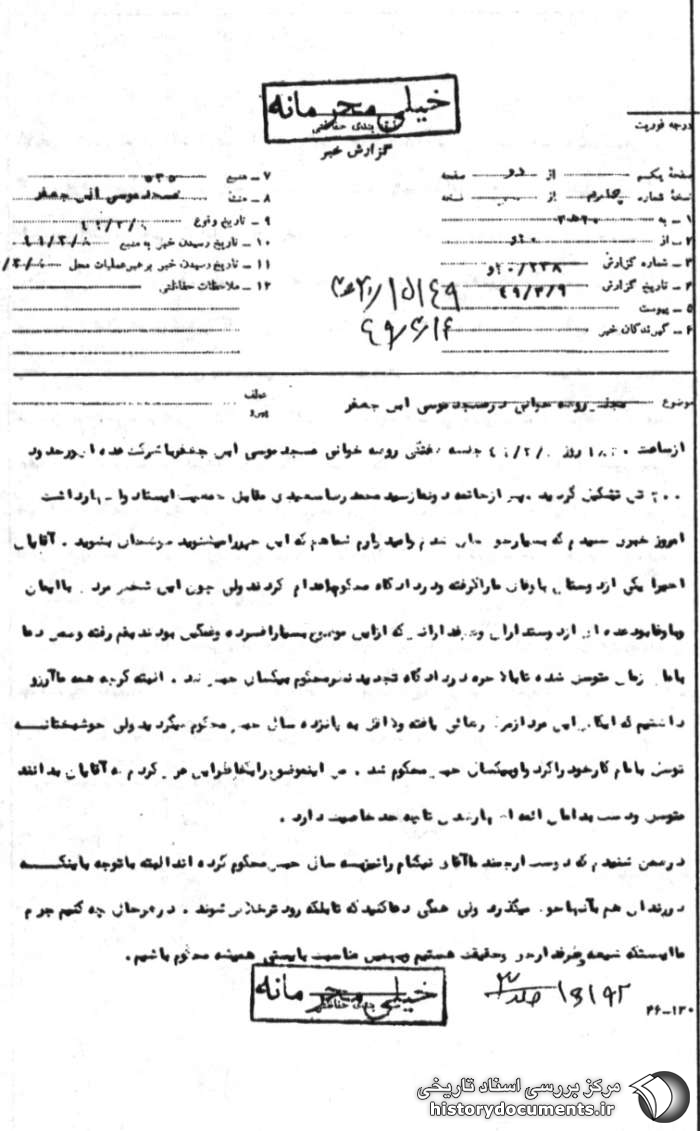 خیلی محرمانه
طبقه بندی حفاظتی
گزارش خبر
درجه فوریت
صفحه یکم از دو صفحه
نسخه شماره چهارم از نسخه
۱ – به ۳۵۲۰
۲ – از ۲۰و
۳ – شماره گزارش ۲۰/۲۳۸و
۴ – تاریخ گزارش ۴۹/۳/۹
۵ – پیوست
۶ – گیرندگان خبر
۷ – منبع ۵۳۵
۸ – منشاء مسجد موسی ابن جعفر
۹ – تاریخ وقوع
۱۰ – تاریخ رسیدن خبر به منبع
۱۱ – تاریخ رسیدن خبر برهبر عملیات محل
۱۲ – ملاحظات حفاظتی
۴۹/۴/۱۶
موضوع مجلس روضه خوانی در مسجد موسی ابن جعفر
عطف
پیرو
از ساعت روز جلسه هفتگی روضه خوانی مسجد موسی ابن جعفر با شرکت عده ای در حدود
تشکیل گردید. پس از خاتمه دو نماز سید محمد رضا سعیدی مقابل جمعیت ایستاد و اظهار داشت
امروز خبری شنیدم که بسیار خوشحال شدم و امیدوارم شما هم که این خبر را میشنوید خوشحال بشوید. آقایان
اخیرا یکی از دوستان با وفای ما را گرفته و در دادگاه محکوم باعدام کردند ولی چون این شخص مردی با ایمان
و با وفا بود عده ای از دوستداران و طرفدارانی که از این موضوع بسیار افسرده و غمگین بودند بقم رفته و ضمن دعا
بامام زمان متوسل شده تا بالاخره در دادگاه تجدید نظر محکوم بیکسال حبس شد. البته گرچه همه ما آرزو
داشتیم که اینکه این مرد از مرگ رهائی یافته و لااقل به پانزده سال حبس محکوم میگردید ولی خوشبختانه
توسل بامام کار خود را کرد و او بیکسال حبس محکوم شد. من اینموضوع را بخاطر این عرض کردم که آقایان بدانند
متوسل و دست بدامان ائمه اطهار شدن تا چه حد خاصیت دارد.
در ضمن شنیدم که دوست ارجمند ما آقای نیکنام را نیز سه سال حبس محکوم کرده اند البته با توجه باینکه
در زندان هم بآنها خوش میگذرد ولی همگی دعا کنید که تا بلکه زودتر خلاص شوند. در هر حال چه کنیم جرم
ما اینستکه شیعه و طرفدار حق و حقیقت هستیم و بهمین مناسبت بایستی همیشه محکوم باشیم.
خیلی محرمانه
طبقه بندی حفاظتی
جلد ۳
۱۶۱۹۲
۴۶–۱۲۰
مرکز بررسی اسناد تاریخی
historydocuments.ir